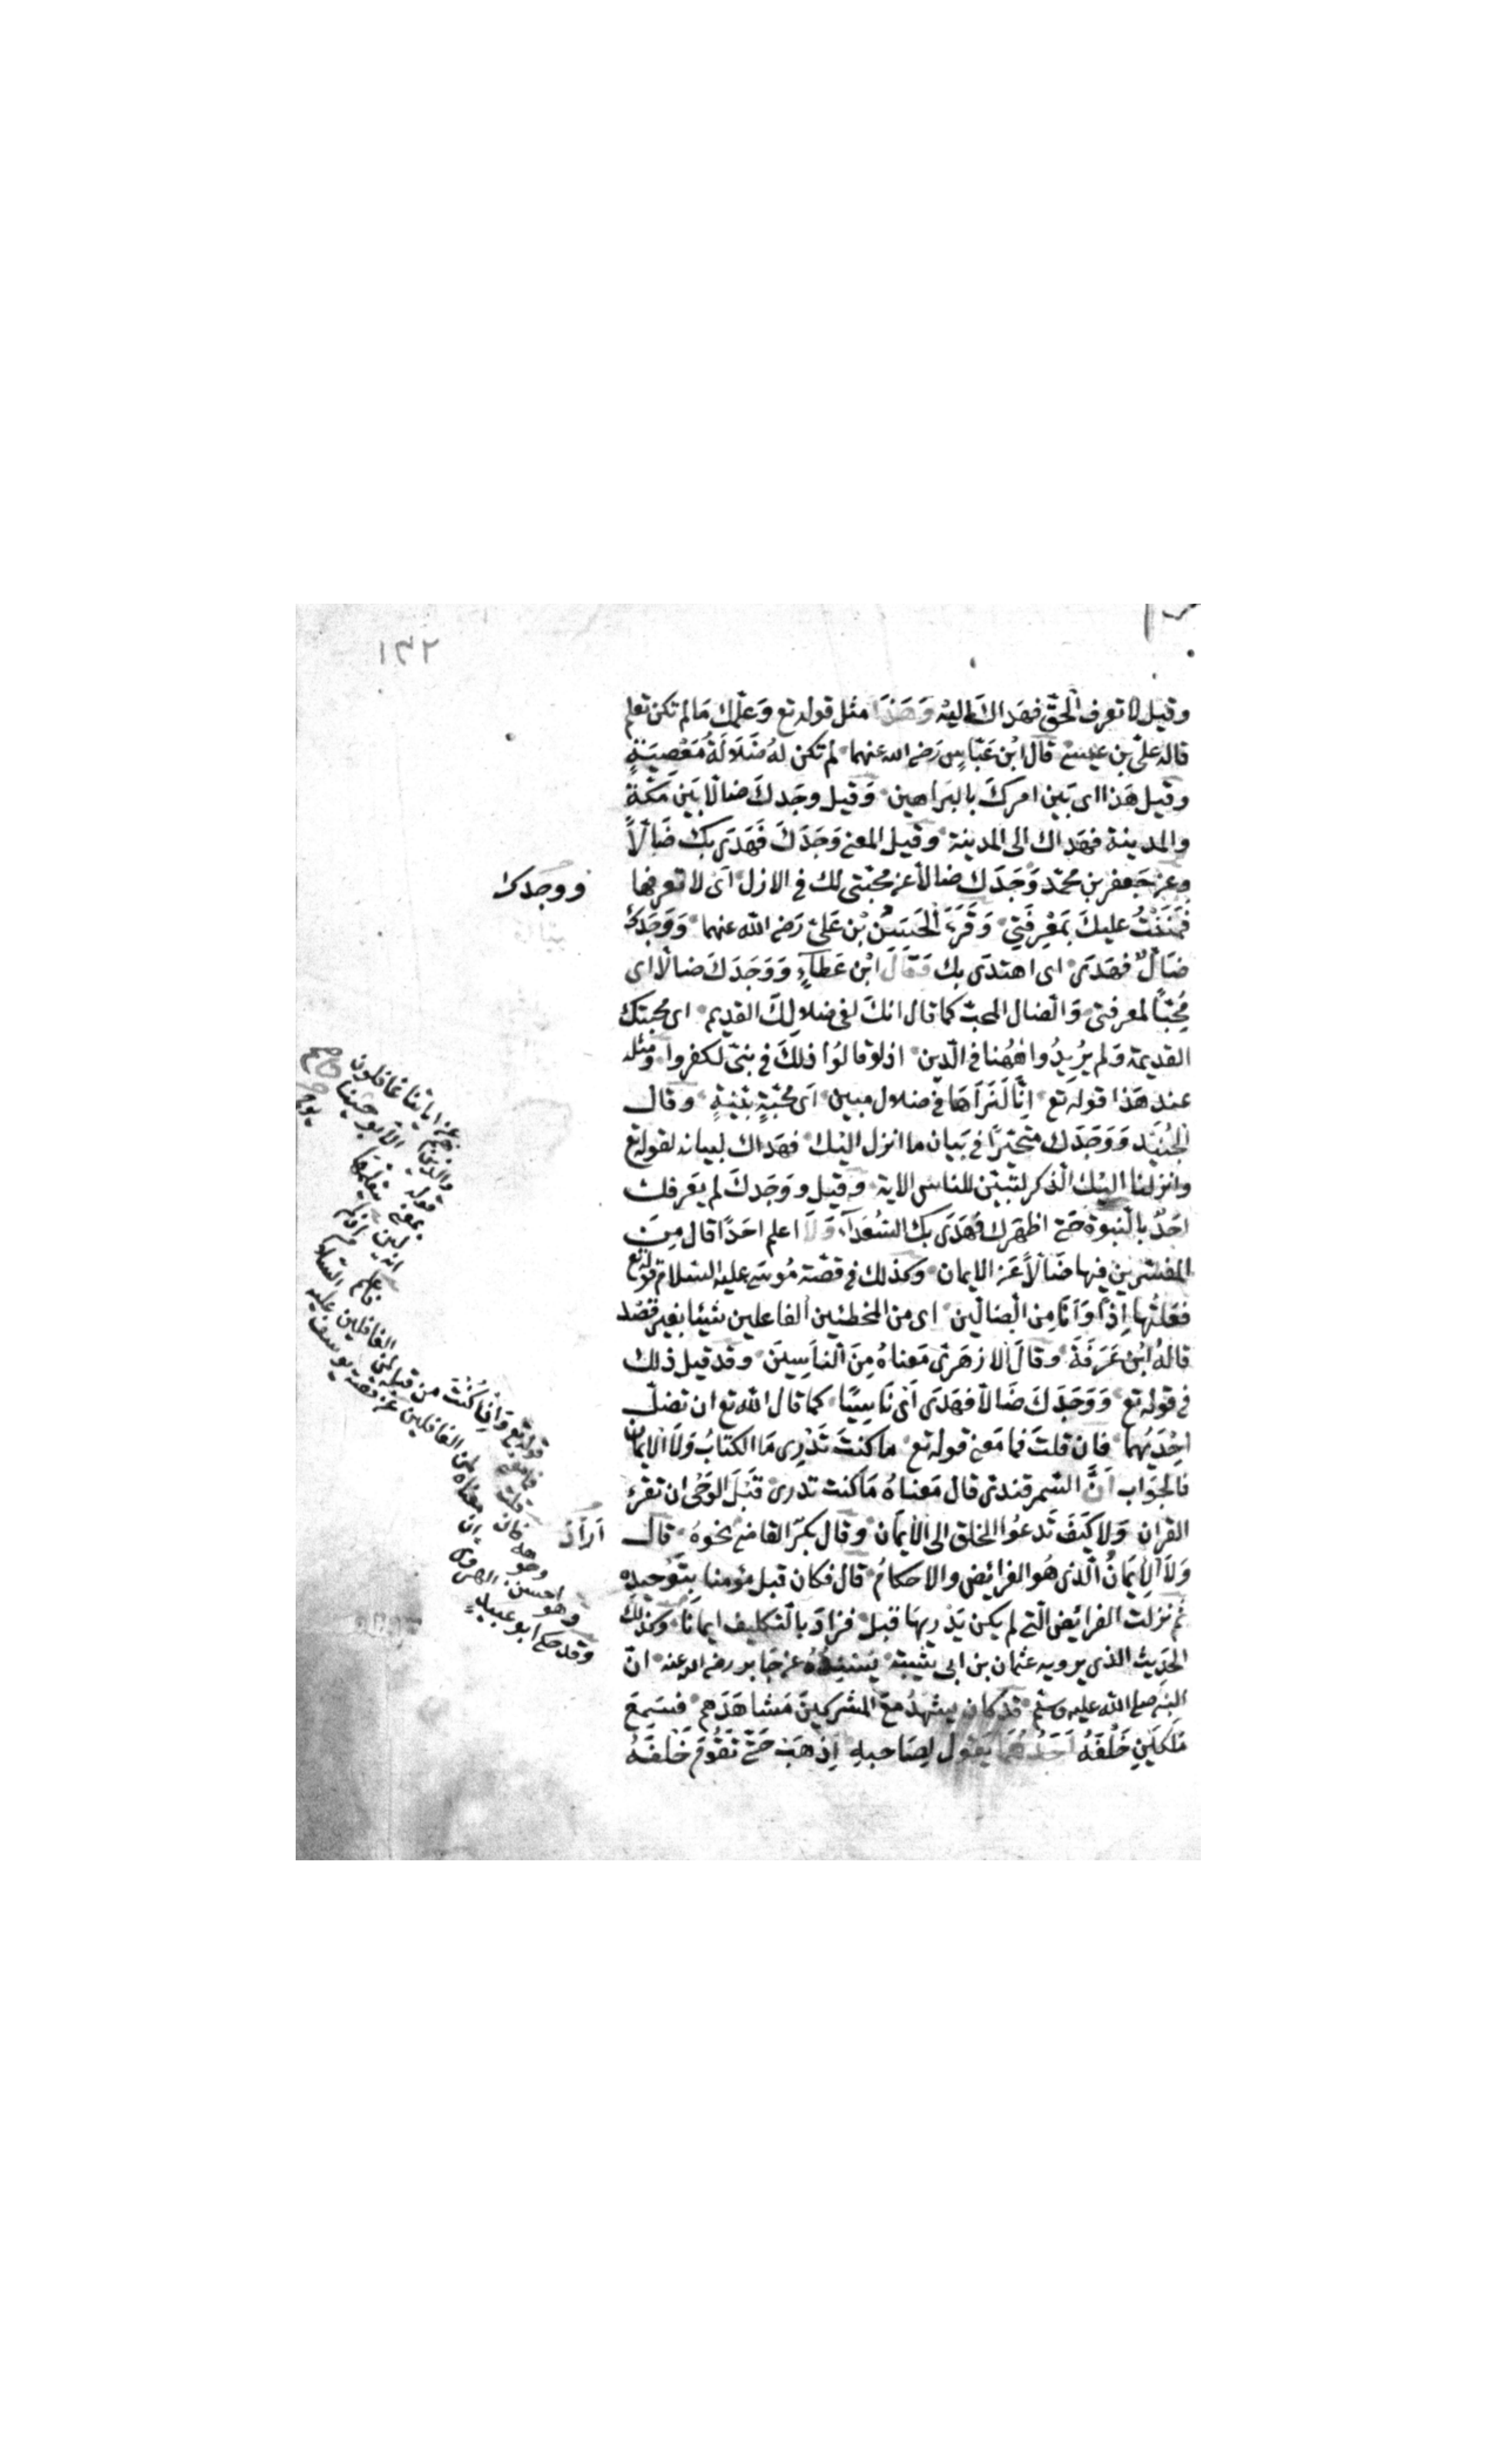 ١٣٢
وقيل لا تعرف الحق فهداك اليه وهذا مثل قوله تع وعلمك مالم تكن تعلم
قاله على بن عيسى قال ابن عباس رضى الله عنهما لم تكن له ضلالة معصية
وقيل هذا اى بين امرك بالبراهين وقيل وجدك ضالا بين مكة
والمدينة فهداك الى المدينة وقيل المعنى وجدك فهدى بك ضالا
وعن جعفر بن محمد وجدك ضالا عن محبتى لك فى الازل اى لا تعرفها
فمننت عليك بمعرفتي وقرء الحسن بن على رضى الله عنهما ووجدك
ووجدك
ضال فهدى اى اهتدى بك وقال ابن عطاء ووجدك ضالا اى
محبا لمعرفتى والضال المحب كما قال انك لفى ضلالك القديم اى محبتك
القديمة ولم يريدوا ههنا فى الدين اذ لو قالوا ذلك فى نبى لكفروا ومثله
عند هذا قوله تع انا لنراها فى ضلال مبين اى محبة بينة وقال
الجنيد ووجدك متحيرا فى بيان ما انزل اليك فهداك لبيانه لقوله تع
وانزلنا اليك الذكر لتبين للناس الاية وقيل ووجدك لم يعرفك
احد بالنبوة حتى اظهرك فهدى بك السعداء ولا اعلم احدا قال من
المفسرين فيها ضالا عن الايمان وكذلك فى قصة موسى عليه السلام قوله تع
فعلتها اذا وانا من الضالين اى من المخطئين الفاعلين شيئا بغير قصد
قاله ابن عرفة وقال الازهرى معناه من الناسين وقد قيل ذلك
فى قوله تع ووجدك ضالا فهدى اى ناسيا كما قال الله تع ان تضل
احديهما فان قلت فما معنى قوله تع ما كنت تدرى ما الكتاب ولا الايمان
فالجواب ان السمرقندى قال معناه ما كنت تدرى قبل الوحى ان تقرء
القران ولا كيف تدعوا الخلق الى الايمان وقال بكر القاضى نحوه قال
ولا الايمان الذى هو الفرائض والاحكام قال فكان قبل مؤمنا بتوحيده
ثم نزلت الفرائض التى لم يكن يدريها قبل فزاد بالتكليف ايمانا وكذلك
الحديث الذى يرويه عثمان بن ابى شيبة بسنده عن جابر رضى الله عنه ان
النبى صلى الله عليه وسلم قد كان يشهد مع المشركين مشاهدهم فسمع
ملكين خلفه احدهما يقول لصاحبه اذهب حتى تقوم خلفه
قوله تع وان كنت من قبله لمن الغافلين
فاعلم انه ليس بمعنى قوله
والذين هم عن اياتنا غافلون
وقد حكى ابو عبيد
الهروى ان معناه لمن الغافلين عن قصة يوسف عليه السلام